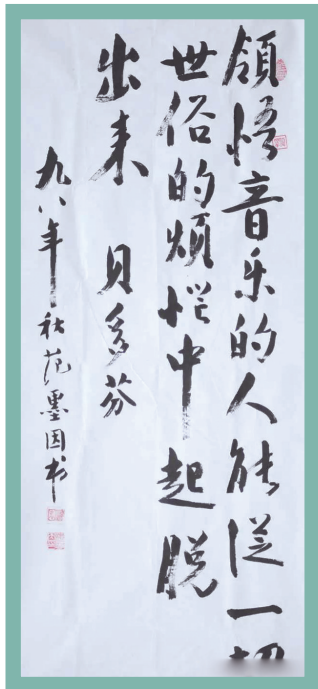 领悟音乐的人能從一切
世俗的烦恼中超脱
出来 贝多芬
九八年秋范墨因书